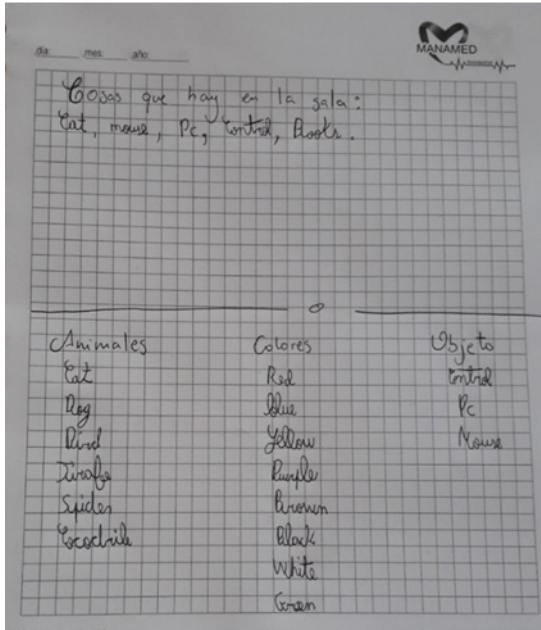 MANAMED
dia: mes: año:
Cosas que hay en la sala:
Cat, mouse, Pc, Control, Books.
Animales
Cat
Dog
Bird
Jirafe
Spider
Cocodrile
Colores
Red
Blue
Yellow
Purple
Brown
Black
White
Green
Objeto
Control
Pc
Mouse